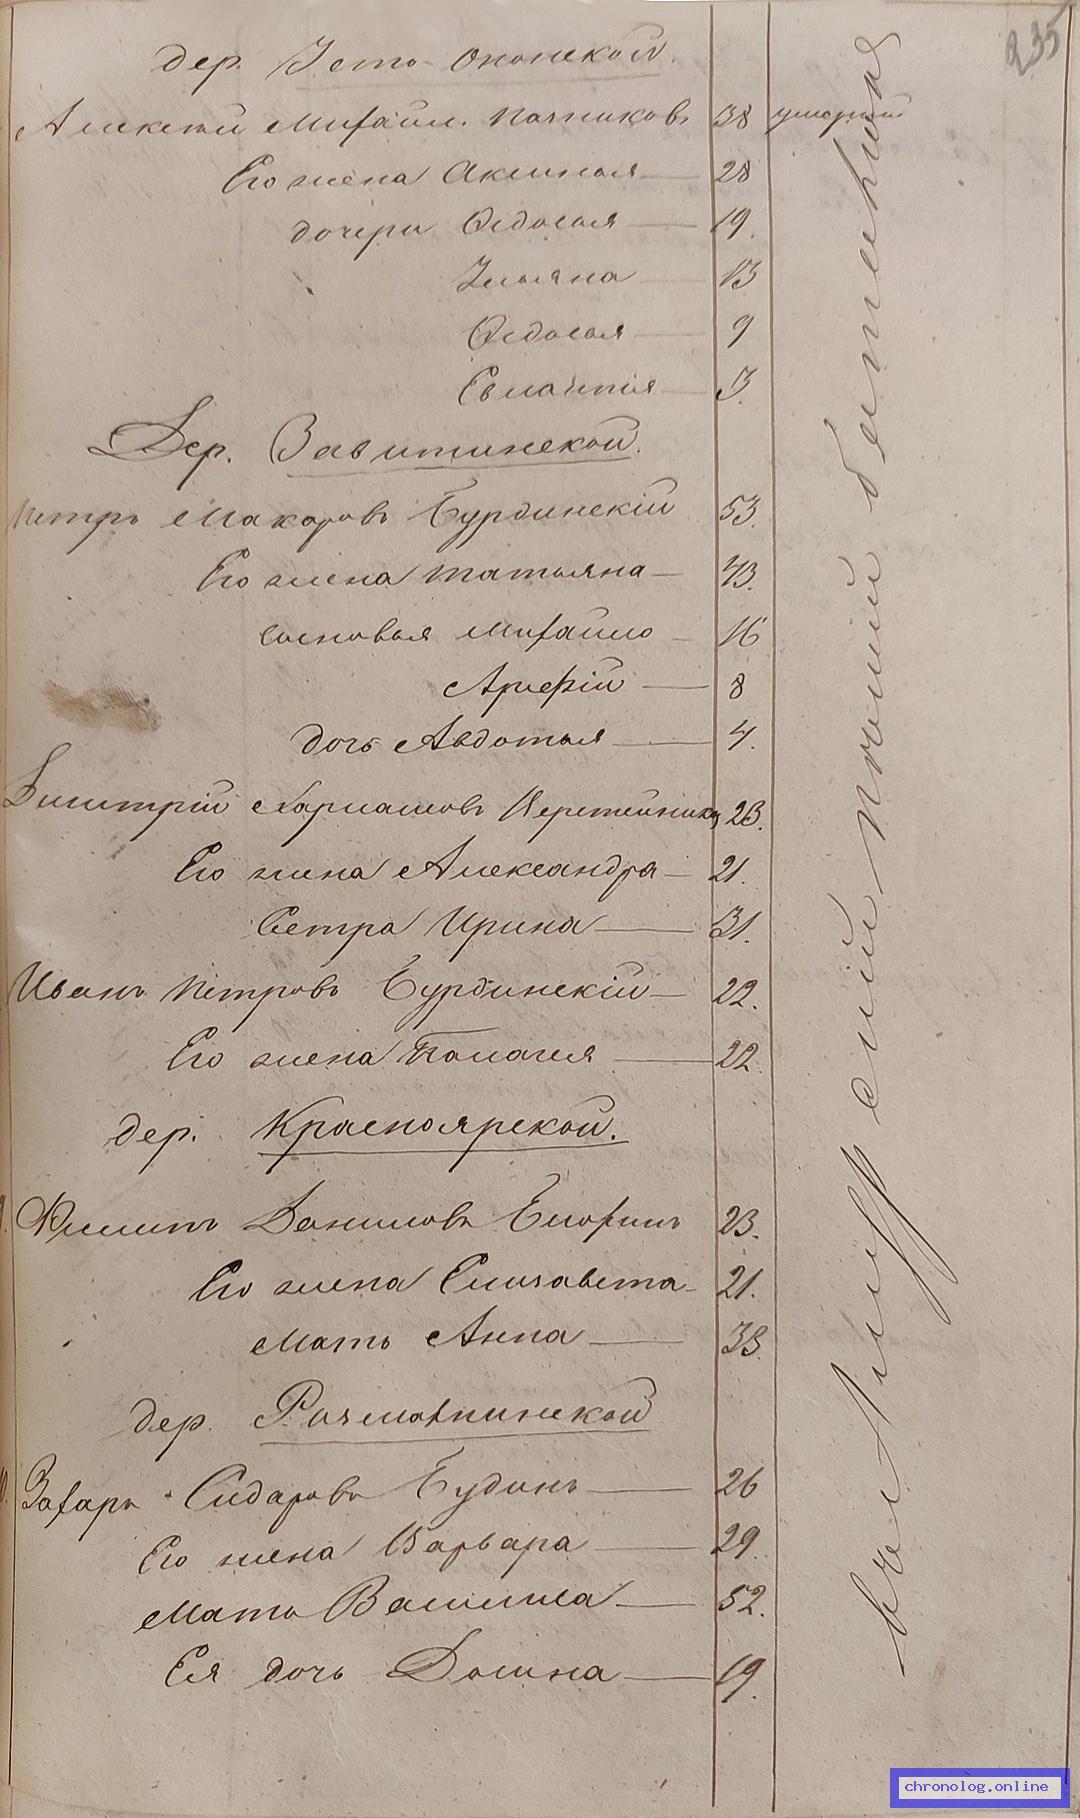 235
дер. Усто-Ононской.
Алексей Михайл. Пачниковъ 38 умерший
Его жена Аксинья 28
дочери Федосья 19.
Ульяна 13
Федосья 9
3.
Дер. Завитинской.
Петръ Макаровъ Бурдинскій 53.
Его жена Татьяна 43.
сыновья Михайло 16
Арсеній 8
дочь Авдотья 4.
Димитрій 23.
Его жена Александра 21.
Сестра Ирина 31.
Иванъ Петровъ Бурдинскій 22.
Его жена Палагея 22.
дер. Красноярской.
Филипъ Даниловъ Епифинъ 23.
Его жена Елизавета 21.
Мать Анна 33.
дер. Размахнинской
Захаръ Сидаровъ Будинъ 26
Его жена Варвара 29.
Мать Василиса 52.
Ея дочь Домна 19.
chronolog.online